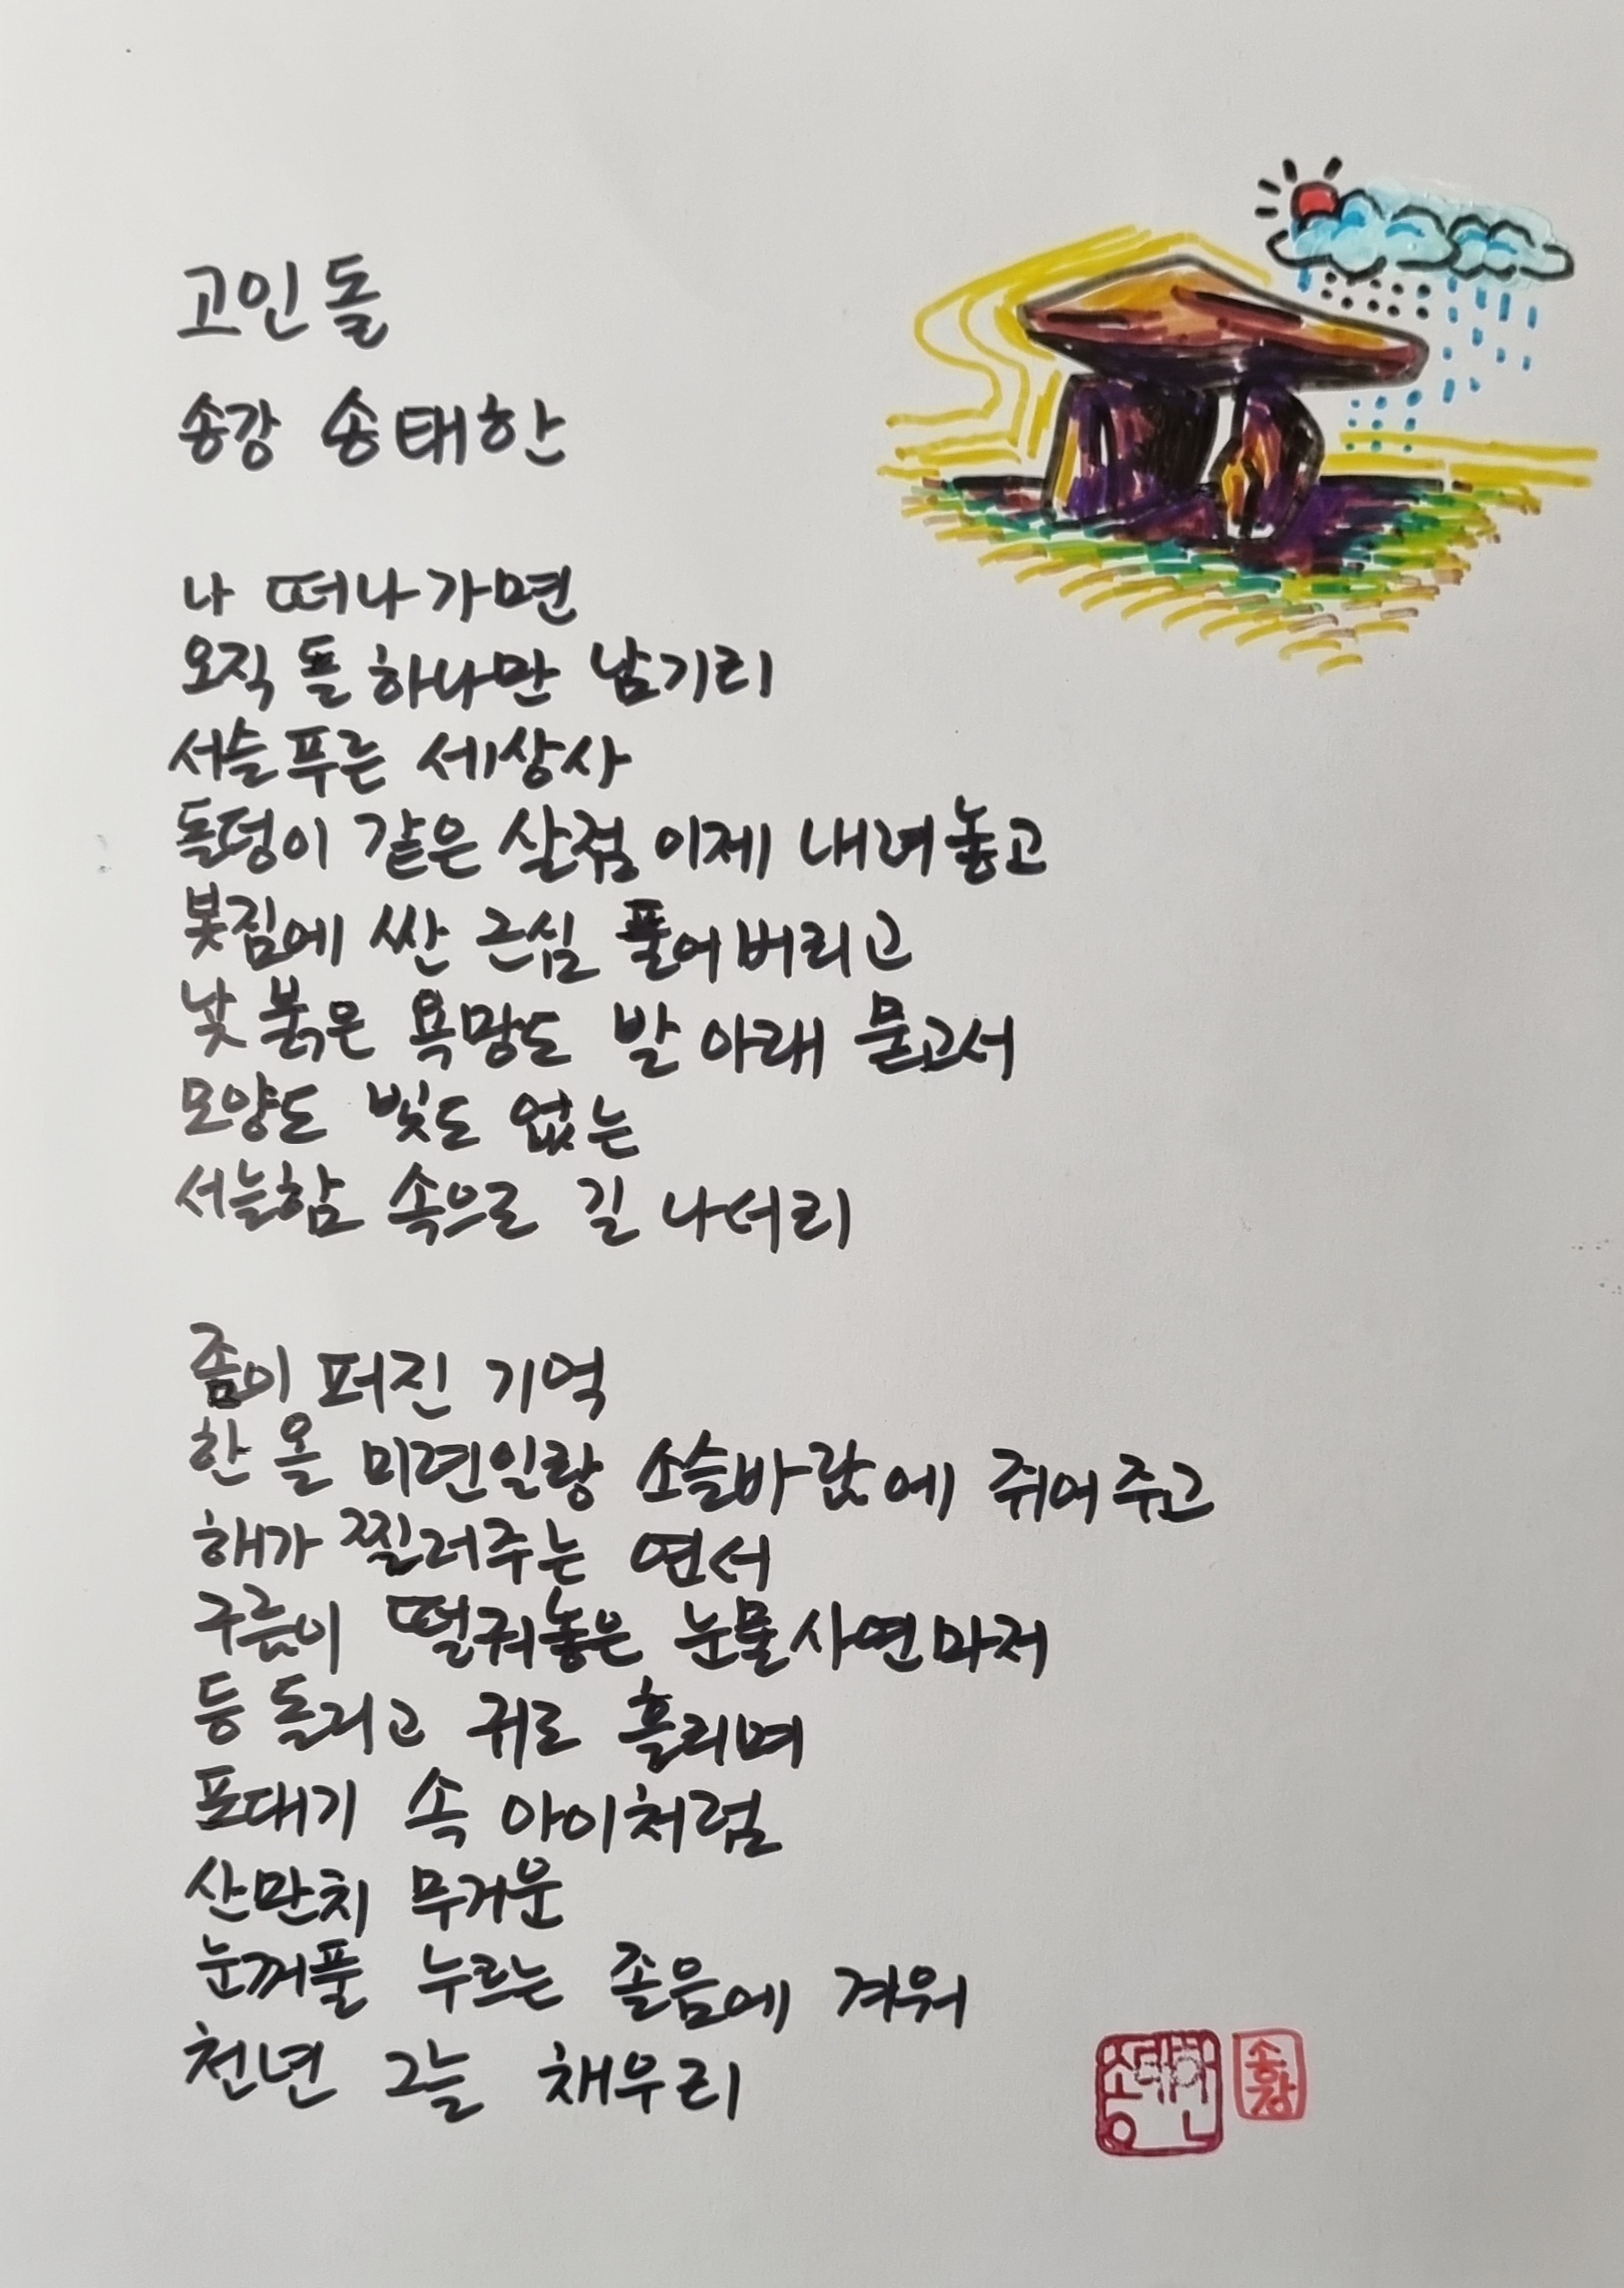 고인돌
송강 송태한
나 떠나가면
오직 돌 하나만 남기리
서슬 푸른 세상사
돌덩이 같은 살점 이제 내려놓고
봇짐에 싼 근심 풀어버리고
낯 붉은 욕망도 발 아래 묻고서
모양도 빛도 없는
서늘함 속으로 길 나서리
좀이 퍼진 기억
한 올 미련일랑 소슬바람에 쥐어주고
해가 찔러주는 연서
구름이 떨궈놓은 눈물 사연마저
등 돌리고 귀로 흘리며
포대기 속 아이처럼
산만치 무거운
눈꺼풀 누르는 졸음에 겨워
천년 그늘 채우리
송태한